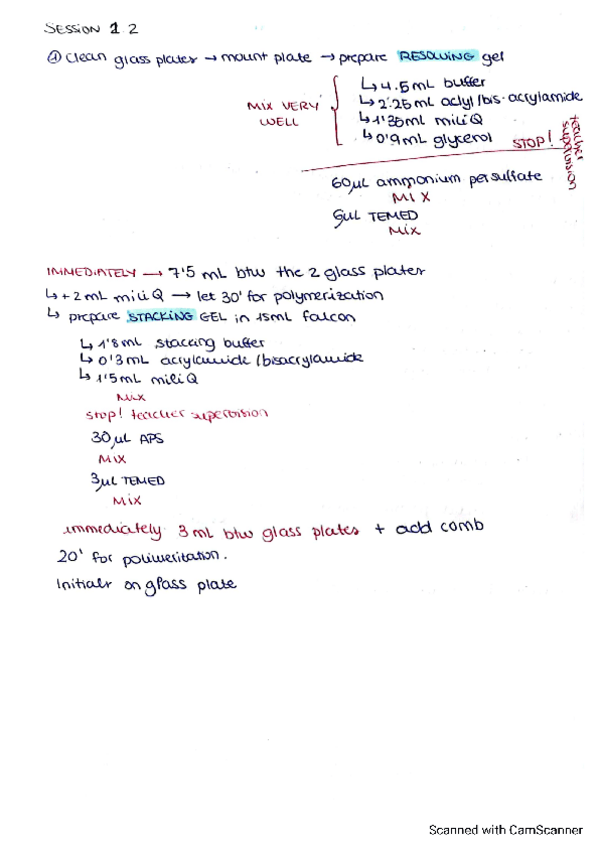 SESSION 1.2
① Clean glass plates → mount plate → prepare RESOLVING gel
MIX VERY WELL
↳ 4.5mL buffer
↳ 2'25mL aclyl/bis-acrylamide
↳ 1'35mL miliQ
↳ 0'9mL glycerol STOP! teacher supervision
60µL ammonium persulfate
MIX
6µL TEMED
Mix
IMMEDIATELY → 7'5 mL btw the 2 glass plates
↳ + 2mL miliQ → let 30' for polymerization
↳ prepare STACKING GEL in 15mL falcon
↳ 1'8mL stacking buffer
↳ 0'3mL acrylamide/bisacrylamide
↳ 1'5mL miliQ
Mix
stop! teacher supervision
30µL APS
MIX
3µL TEMED
Mix
immediately 3mL btw glass plates + add comb
20' for polimeritation.
Initials on glass plate
Scanned with CamScanner